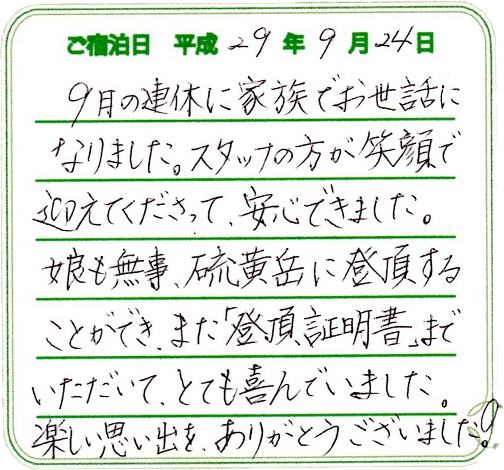 ご宿泊日 平成 29 年 9 月 24 日
9月の連休に家族でお世話に
なりました。スタッフの方が笑顔で
迎えてくださって、安心できました。
娘も無事、硫黄岳に登頂する
ことができ、また「登頂証明書」まで
いただいて、とても喜んでいました。
楽しい思い出を、ありがとうございました。